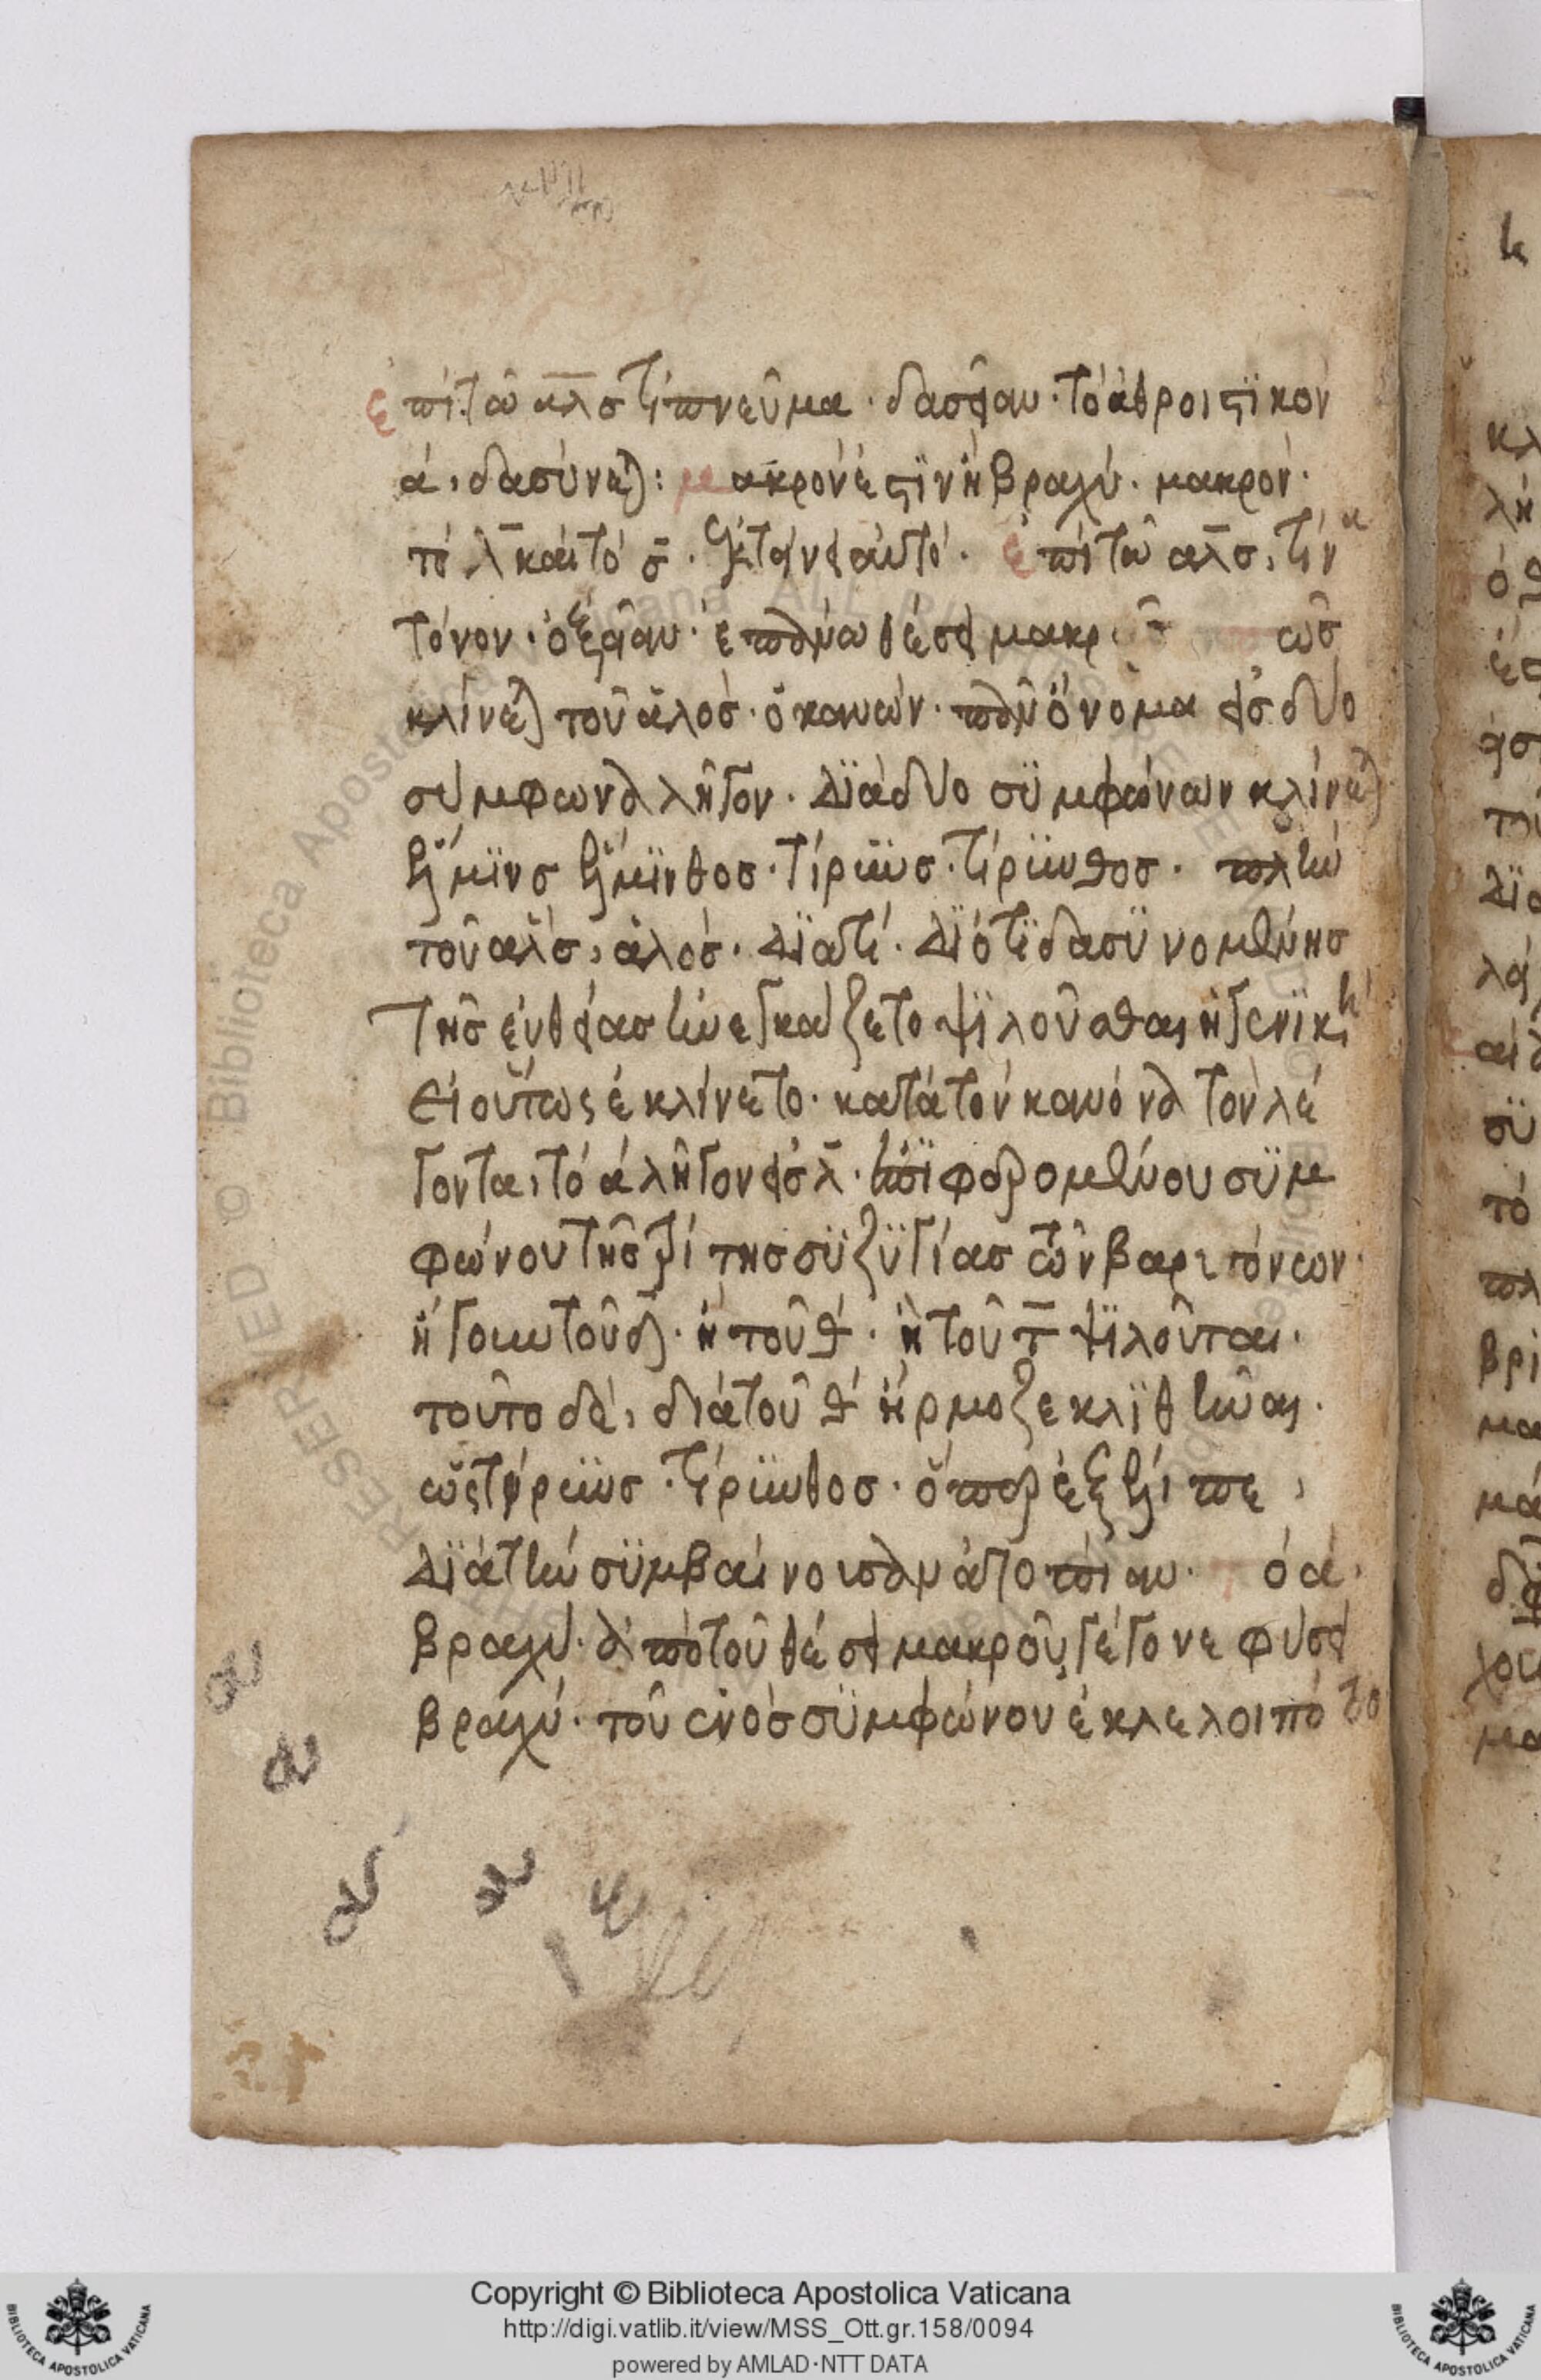 ἐπὶ τῶ αλσ τί πνεῦμα · δασεῖαν · τὸ ἀθροιστϊκὸν
ἁ, δασύνεται : μακρόν ἐστϊν ἢ βραχύ · μακρόν ·
τὸ λ καὶ τὸ σ · ἐκτείνει αὐτό · ἐπὶ τῶ αλσ, τίνα
τόνον · ὀξεῖαν · ἐπειδὴ θέσει μακρ ὡς
κλίνεται τοῦ ἁλός · ὁ κανών · πᾶν ὄνομα εἰς δύο
σύμφωνα λῆγον · δϊὰ δύο συμφώνων κλίνεται
ἕλμϊνς ἕλμϊνθος · τίρϊυνς · τίρϊυνθος · πλὴν
τοῦ ἅλς, ἁλός · δϊατί · δϊότϊ δασϋνομένης
τῆς εὐθείας ἠναγκάζετο ψϊλοῦσθαι ἡ γενϊκὴ
εἰ οὕτως ἐκλίνετο · κατὰ τὸν κανόνα τὸν λέ
γοντα, τὸ ἁ λῆγον εἰς λ · ἐπϊφερομένου συμ
φώνου τῆς τρίτης συζϋγίας τῶν βαρυτόνων ·
ἤγουν τοῦ δ · ἢ τοῦ θ · ἢ τοῦ τ ψϊλοῦται ·
τοῦτο δὲ, διὰ τοῦ θ ἥρμοζε κλϊθῆναι ·
ὡς τίρϊυνς · τίρϊυνθος · ὅπερ ἐξέλιπε,
δϊὰ τὴν συμβαίνουσαν ἀτοπίαν · ὁ ἁ ·
βραχύ · ἀπὸ τοῦ θέσει μακροῦ, γέγονε φύσει
βραχύ · τοῦ ἑνὸς συμφώνου ἐκλελοιπότο
Copyright © Biblioteca Apostolica Vaticana
http://digi.vatlib.it/view/MSS_Ott.gr.158/0094
powered by AMLAD·NTT DATA